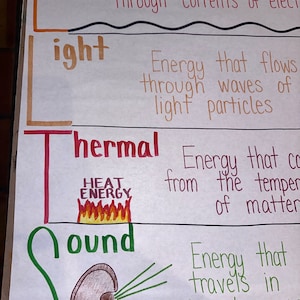 through currents of elect
Light
Energy that flows
through waves of
light particles
Thermal
HEAT
ENERGY
Energy that ca
from the temper
of matter
Sound
Energy that
travels in